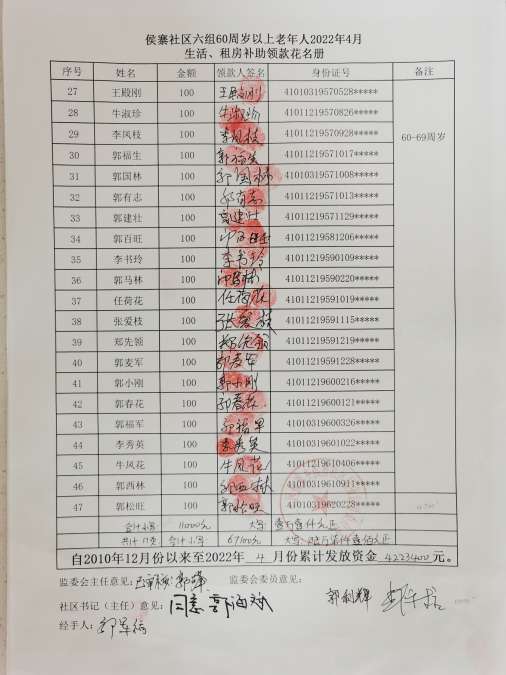 侯寨社区六组60周岁以上老年人2022年4月
生活、租房补助领款花名册
序号 姓名 金额 领款人签名 身份证号 备注
27 王殿刚 100 王殿刚 41010319570528*****
28 牛淑珍 100 牛淑珍 41011219570826*****
29 李凤枝 100 李凤枝 41011219570928***** 60-69周岁
30 郭福生 100 郭福生 41011219571017*****
31 郭国林 100 郭国林 41010319571008*****
32 郭有志 100 郭有志 41011219571013*****
33 郭建壮 100 郭建壮 41011219571129*****
34 郭百旺 100 郭百旺 41011219581206*****
35 李书玲 100 李书玲 41011219590109*****
36 郭马林 100 郭马林 41011219590220*****
37 任荷花 100 任荷花 41011219591019*****
38 张爱枝 100 张爱枝 41011219591115*****
39 郑先领 100 郑先领 41011219591219*****
40 郭麦军 100 郭麦军 41011219591228*****
41 郭小刚 100 郭小刚 41011219600216*****
42 郭春花 100 郭春花 41011219600121*****
43 郭福军 100 郭福军 41010319600326*****
44 李秀英 100 李秀英 41010319601022*****
45 牛凤花 100 牛凤花 41011219610406*****
46 郭西林 100 郭西林 41010319610911*****
47 郭松旺 100 郭松旺 41010319620228*****
合计小写 11000元 大写 壹万壹仟元正
共计 合计小写 67100元 大写 陆万柒仟壹佰元正
自2010年12月份以来至2022年 4 月份累计发放资金 4223400 元。
监委会主任意见： 监委会委员意见：
郭利辉
社区书记（主任）意见：同意
经手人：郭军